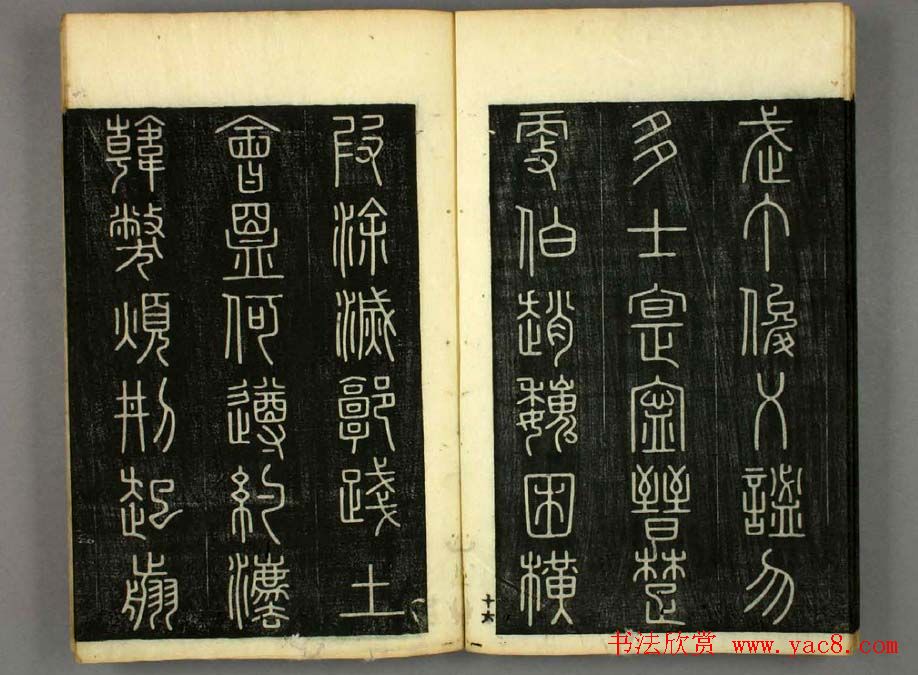 武丁俊乂謐勿
多士寔寧晉楚
更伯趙魏困橫
十六
叚涂滅郭踐土
會盟何遵約灋
韓弊煩刑起翦
书法欣赏 www.yac8.com